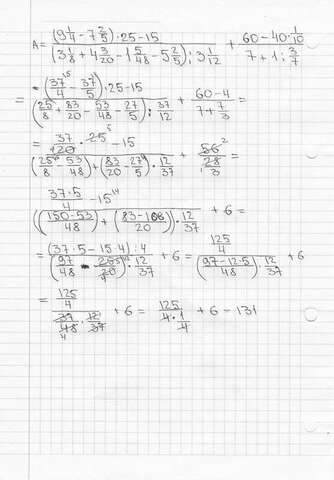 A = ((9 1/4 - 7 2/5) · 25 - 15) / ((3 1/8 + 4 3/20 - 1 5/48 - 5 2/5) : 3 1/12) + (60 - 40 · 1/10) / (7 + 1 : 3/7)
= ((37/4 - 37/5) · 25 - 15) / ((25/8 + 83/20 - 53/48 - 27/5) : 37/12) + (60 - 4) / (7 + 7/3) =
= (37/20 · 25 - 15) / ((25/8 - 53/48) + (83/20 - 27/5) · 12/37) + 56/(28/3) =
(37 · 5/4 - 15) / (((150 - 53)/48) + ((83 - 108)/20)) · 12/37 + 6 =
= ((37 · 5 - 15 · 4) : 4) / ((97/48 - 25/20) · 12/37) + 6 = (125/4) / (((97 - 12 · 5)/48) · 12/37) + 6
= (125/4) / (37/48 · 12/37) + 6 = 125 / (4 · 1/4) + 6 = 131